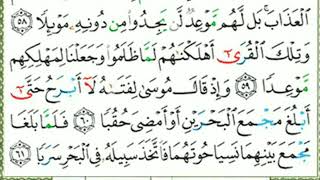 الْعَذَابَ ۚ بَل لَّهُم مَّوْعِدٌ لَّن يَجِدُوا۟ مِن دُونِهِۦ مَوْئِلًا ٥٨
وَتِلْكَ الْقُرَىٰٓ أَهْلَكْنَٰهُمْ لَمَّا ظَلَمُوا۟ وَجَعَلْنَا لِمَهْلِكِهِم
مَّوْعِدًا ٥٩ وَإِذْ قَالَ مُوسَىٰ لِفَتَىٰهُ لَآ أَبْرَحُ حَتَّىٰٓ
أَبْلُغَ مَجْمَعَ الْبَحْرَيْنِ أَوْ أَمْضِىَ حُقُبًا ٦٠ فَلَمَّا بَلَغَا
مَجْمَعَ بَيْنِهِمَا نَسِيَا حُوتَهُمَا فَاتَّخَذَ سَبِيلَهُۥ فِى الْبَحْرِ سَرَبًا ٦١